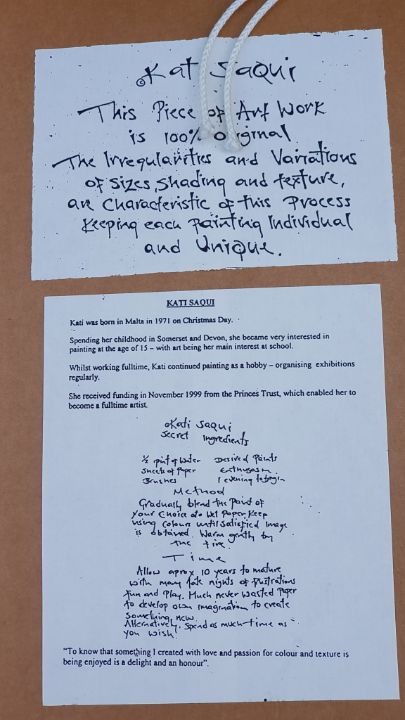 Kati Saqui
This Piece of Art Work
is 100% Original
The Irregularities and Variations
of Sizes, Shading and texture,
are Characteristic of this Process
Keeping each Painting Individual
and Unique.
KATI SAQUI
Kati was born in Malta in 1971 on Christmas Day.
Spending her childhood in Somerset and Devon, she became very interested in
painting at the age of 15 – with art being her main interest at school.
Whilst working fulltime, Kati continued painting as a hobby – organising exhibitions
regularly.
She received funding in November 1999 from the Princes Trust, which enabled her to
become a fulltime artist.
Kati Saqui
Secret Ingredients
½ pint of Water Desired Paints
Sheets of Paper Enthusiasm
Brushes 1 evening to begin
Method
Gradually blend the Paint of
your Choice onto Wet Paper. Keep
using colours until satisfied Image
is obtained. Warm gently by
the fire.
Time
Allow aprox 10 years to mature
with many late nights of frustrations
fun and Play. Much never wasted Paper
to develop own imagination to create
Something new.
Alternatively. Spend as much time as
you wish!
"To know that something I created with love and passion for colour and texture is
being enjoyed is a delight and an honour".